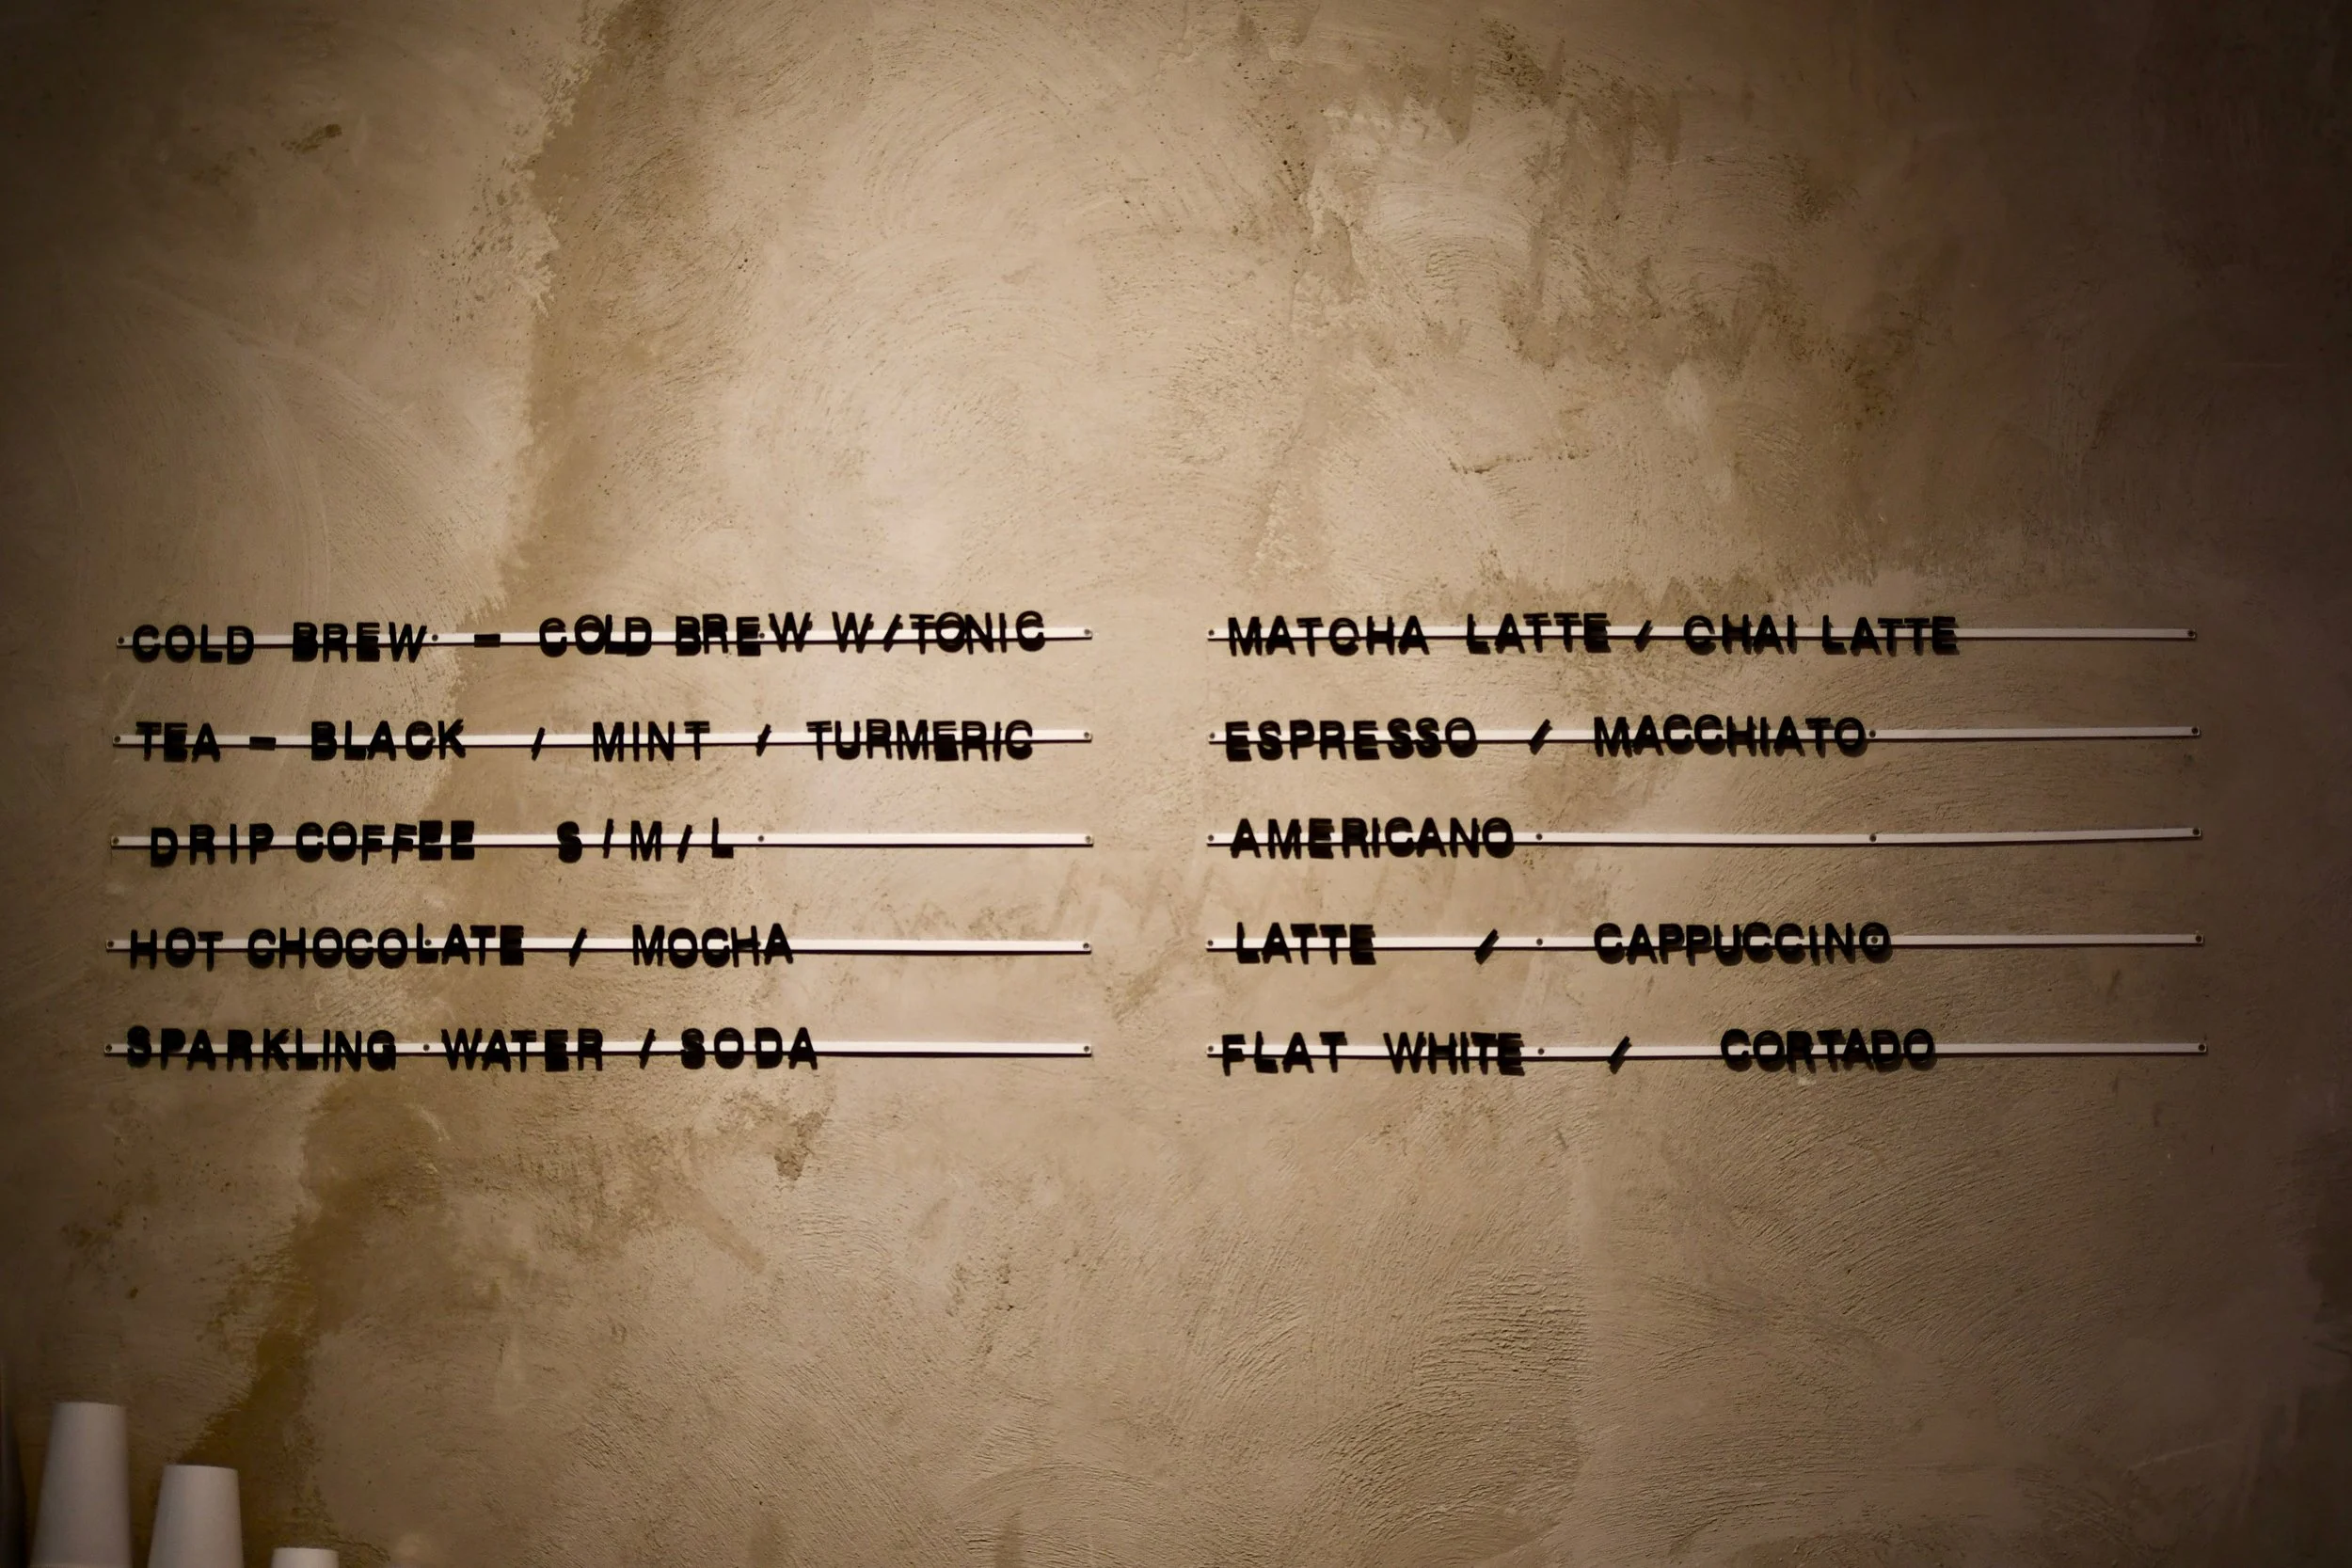 COLD BREW - COLD BREW W/TONIC
TEA - BLACK / MINT / TURMERIC
DRIP COFFEE S/M/L
HOT CHOCOLATE / MOCHA
SPARKLING WATER / SODA
MATCHA LATTE / CHAI LATTE
ESPRESSO / MACCHIATO
AMERICANO
LATTE / CAPPUCCINO
FLAT WHITE / CORTADO